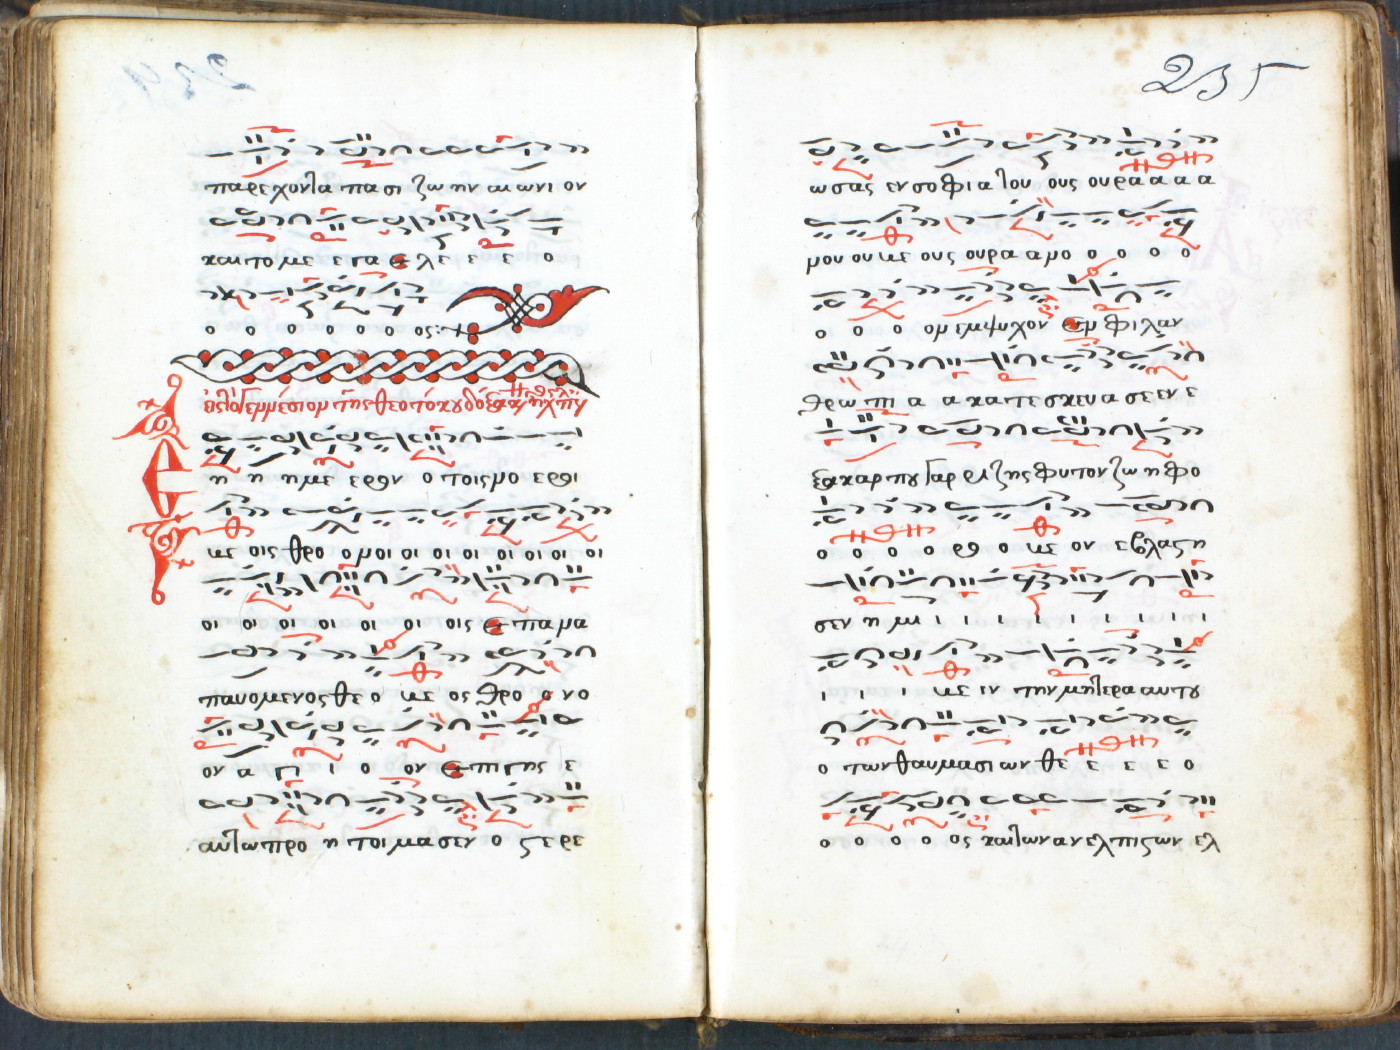 παρεχονlα πασι ζωην αιωνι ον
και το με ε γα ε λε ε ε ε ο
ο ο ο ο ο ο ος:
η η η με ερον ο τοις νο ερoι
με οις θρο ο νοι οι οι οι οι οι οι οι
οι οι οι οι οι οι οις ε πανα
παυομενος θε ο με ος θρο ο νο
ον α γι ι ο ον ε πι γης ε
αυlω προ η τοι μα σεν ο ςε ρε
235
ωσας εν σοφια lου ους ουρα α α α
νου ου με ους ουρα α νο ο ο ο ο
ο ο ο ον εμψυχον ε φιλαν
θρω πι α α κατεσκευα σε εν ε
ξακαρπου γαρ ριζης φυτον ζω η φο
ο ο ο ο ρο ο με ον εβλαςη
σεν η μι ι ι ι ι ι ι ι ι
ι ι ι με ιν την μηlερα αυτου
ο των θαυμασι ων θε ε ε ε ο
ο ο ο ο ος και lων ανελπιςων ελ